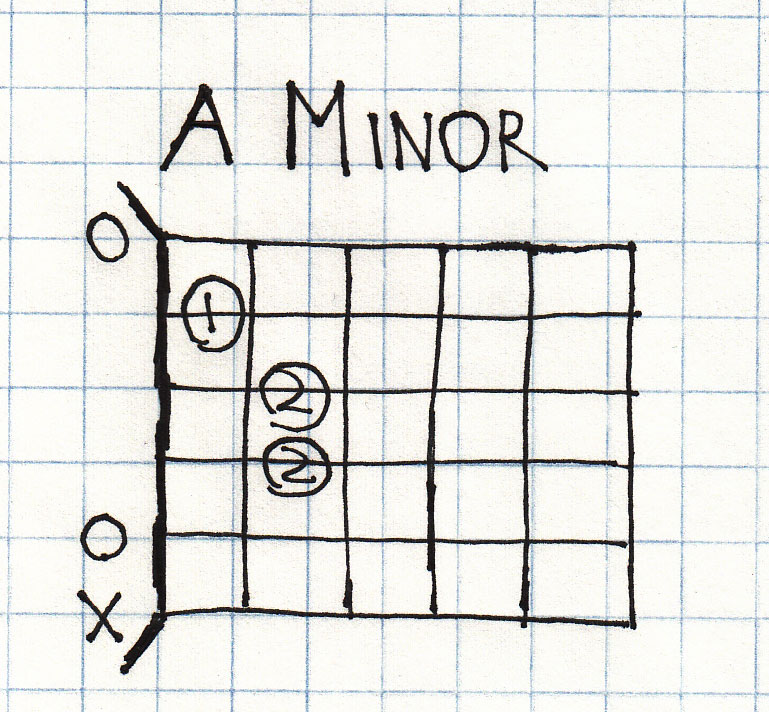 A MINOR
O
1
2
2
O
X